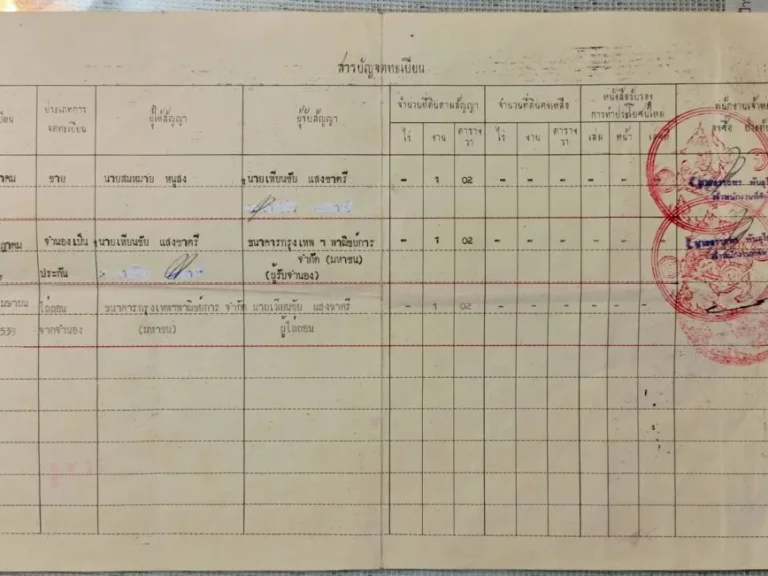 สารบัญจดทะเบียน
ประเภทการ
จดทะเบียน
ผู้ให้สัญญา
ผู้รับสัญญา
จำนวนที่ดินตามสัญญา
ไร่ งาน ตาราง
วา
จำนวนที่ดินคงเหลือ
ไร่ งาน ตาราง
วา
หนังสือรับรอง
การทำประโยชน์ใหม่
เล่ม หน้า
พนักงานเจ้าหน้า
ลงชื่อ
ขาย นายสมหมาย หนูสง นายเทียนชัย แสงชาตรี - 1 02 - - - - -
จำนองเป็น นายเทียนชัย แสงชาตรี ธนาคารกรุงเทพ ฯ พาณิชย์การ - 1 02 - - - - -
จำกัด (มหาชน)
ประกัน (ผู้รับจำนอง)
ไถ่ถอน ธนาคารกรุงเทพฯพาณิชย์การ จำกัด นายเทียนชัย แสงชาตรี - 1 02 - - - - -
539 จากจำนอง (มหาชน) ผู้ไถ่ถอน